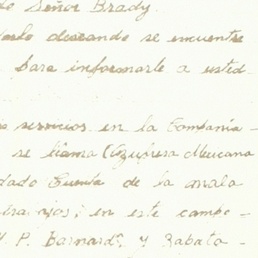 do Señor Brady.
deseando se encuentre
para informarle a usted
servicios en la Compañia
se llama (Azufrera Mexicana
dado Cuenta de la mala
trabajos; en este campo-
P. Barnard, y Zapata-